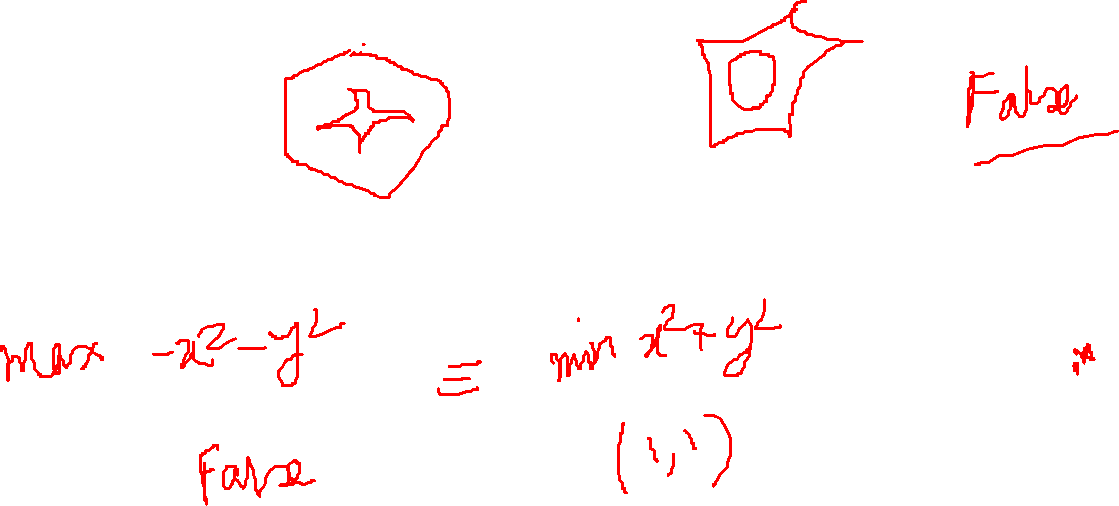 False
max -x² - y² ≡ min x² + y²
False (1,1)